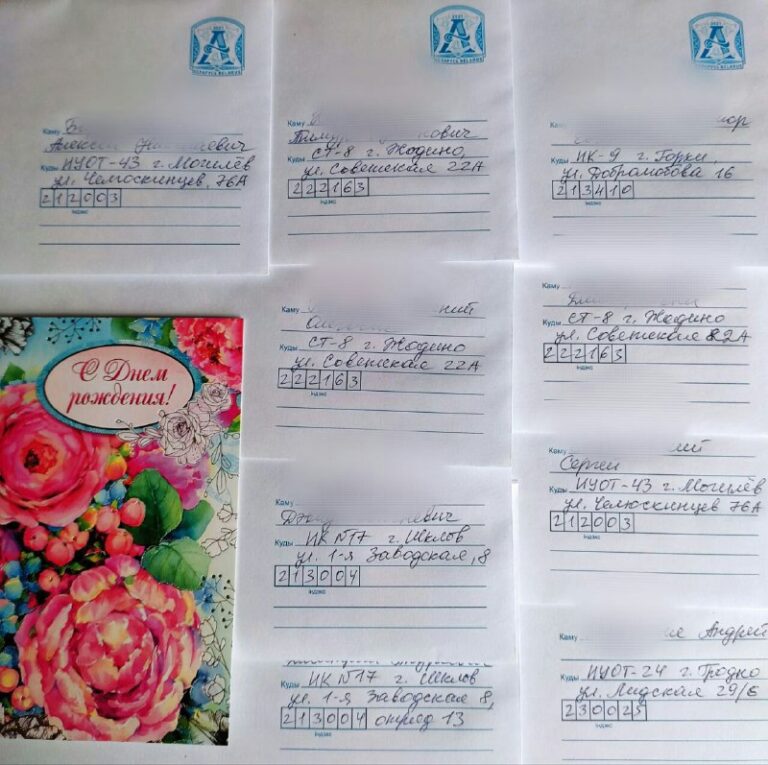 2021
А
BELARUS
Каму
Аляксей
Куды ИУОТ-43 г. Могилёв
ул. Челюскинцев, 76А
212003
індэкс
2021
А
BELARUS
Каму
Тимур
Куды СТ-8 г. Жодино,
ул. Советская 22А
222163
індэкс
2021
А
BELARUS
Каму
Куды ИК-9 г. Горки,
ул. Добролюбова 16
213410
індэкс
Каму
Куды СТ-8 г. Жодино
ул. Советская 22А
222163
індэкс
Каму
Куды СТ-8 г. Жодино
ул. Советская 22А
222163
індэкс
С Днем
рождения!
Каму
Куды ИК №17 г. Шклов
ул. 1-я Заводская, 8
213004
індэкс
Каму
Сергей
Куды ИУОТ-43 г. Могилёв
ул. Челюскинцев 76А
212003
індэкс
Куды ИК №17 г. Шклов
ул. 1-я Заводская 8,
213004 отряд 13
індэкс
Каму Андрей
Куды ИУОТ-24 г. Гродно
ул. Лидская 29/Б
230025
індэкс